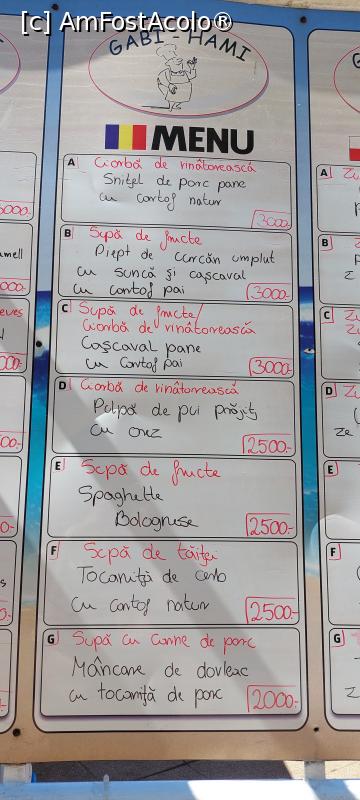 [c] AmFostAcolo®
GABI - HAMI
MENU
A Ciorbă de vinătorească
Snițel de porc pane
cu cartof natur
3000.-
B Supă de fructe
Piept de curcăn umplut
cu suncă și cașcaval
cu cartof pai
3000.-
C Supă de fructe/
Ciorbă de vinătorească
Cașcaval pane
cu cartof pai
3000.-
D Ciorbă de vinătorească
Pulpă de pui prăjiț
cu orez
2500.-
E Supă de fructe
Spaghette
Bolognese
2500.-
F Supă de tăiței
Tocaniță de cerb
cu cartof natur
2500.-
G Supă cu carne de porc
Mâncare de dovleac
cu tocaniță de porc
2000.-
A
B
C
D
E
F
G